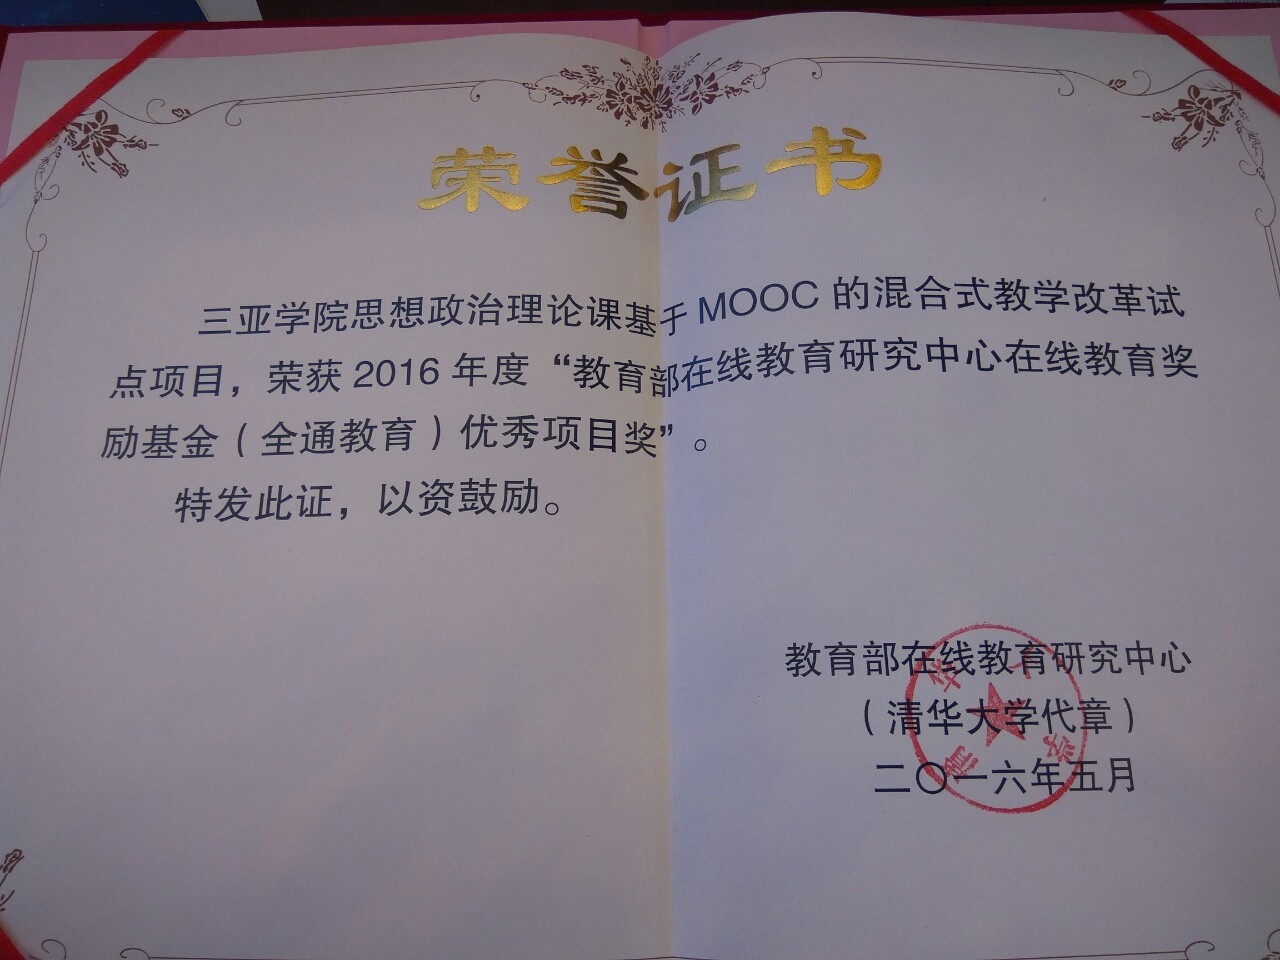 荣誉证书
三亚学院思想政治理论课基于 MOOC 的混合式教学改革试
点项目，荣获 2016 年度“教育部在线教育研究中心在线教育奖
励基金（全通教育）优秀项目奖”。
特发此证，以资鼓励。
教育部在线教育研究中心
（清华大学代章）
二〇一六年五月
清华大学